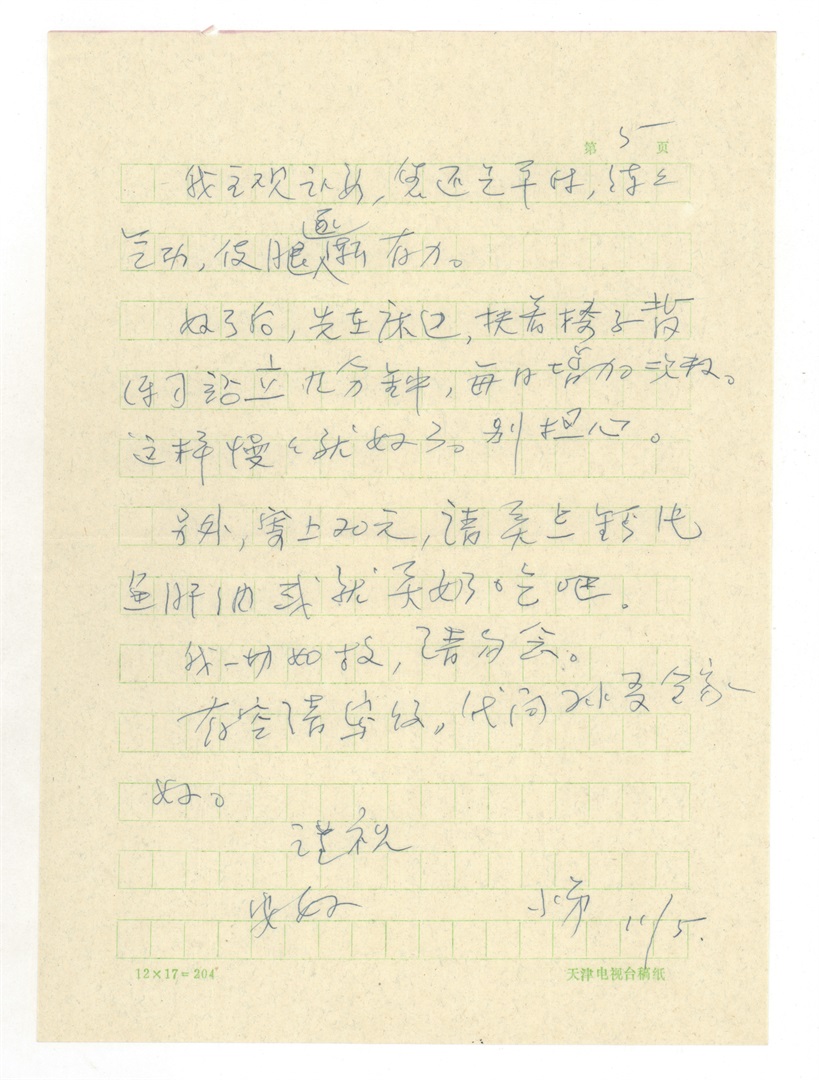 第 5 页
我主观认为,您还是平时,练练
气功,使腿逐渐有力。
好了后,先在床边,扶着椅子背
练习站立几分钟,每日增加次数。
这样慢慢就好了。别担心。
另外,寄上20元,请买点钙片
鱼肝油或就买奶吃吧。
我一切如故,请勿念。
有空请写信。代问 全家
好。
谨祝
安好
小弟 11/5.
12×17=204
天津电视台稿纸